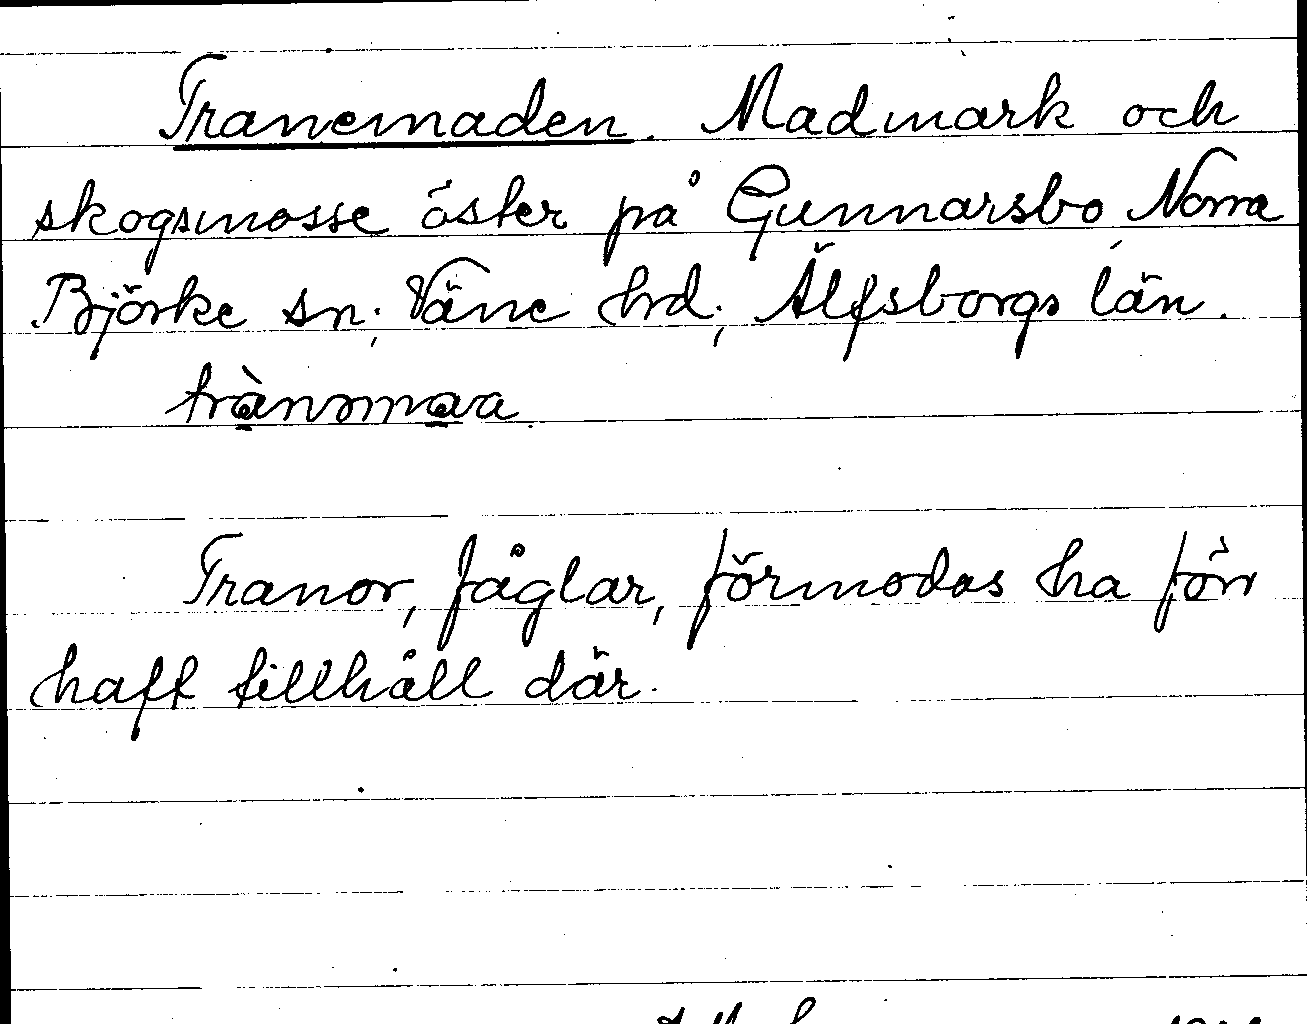 Tranemaden. Madmark och
skogsmosse öster på Gunnarsbo Norra
Björke sn; Väne hrd; Älfsborgs län.
trànmmaa.
Tranor, fåglar, förmodas ha förr
haft tillhåll där.